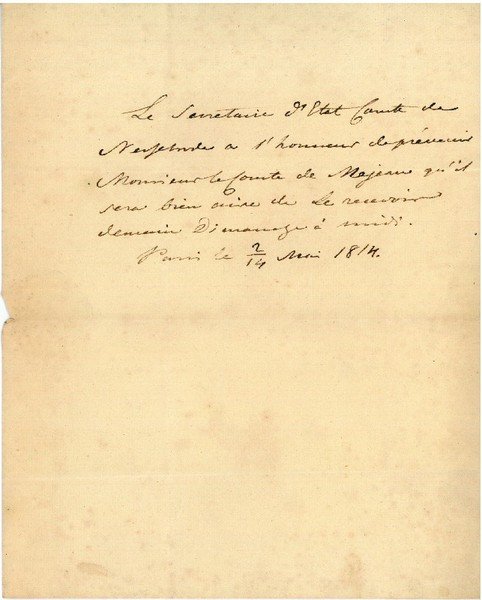 Le Secretaire d'Etat Comte de
Nesselrode a l'honneur de prévenir
Monsieur le Comte de Mejean qu'il
sera bien aise de Le recevoir
demain Dimanche à midi.
Paris le 2/14 Mai 1814.